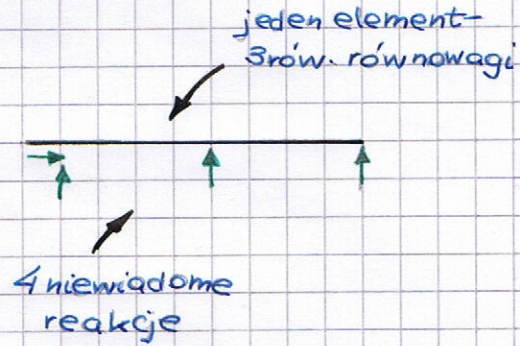 jeden element-
3rów. równowagi
4 niewiadome
reakcje